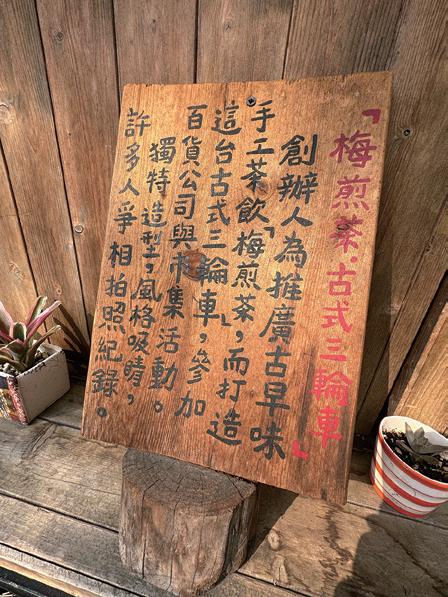 「梅煎茶·古式三輪車」
創辦人為推廣古早味
手工茶飲「梅煎茶」,而打造
這台古式三輪車,參加
百貨公司與市集活動。
獨特造型,風格吸睛,
許多人爭相拍照紀錄。